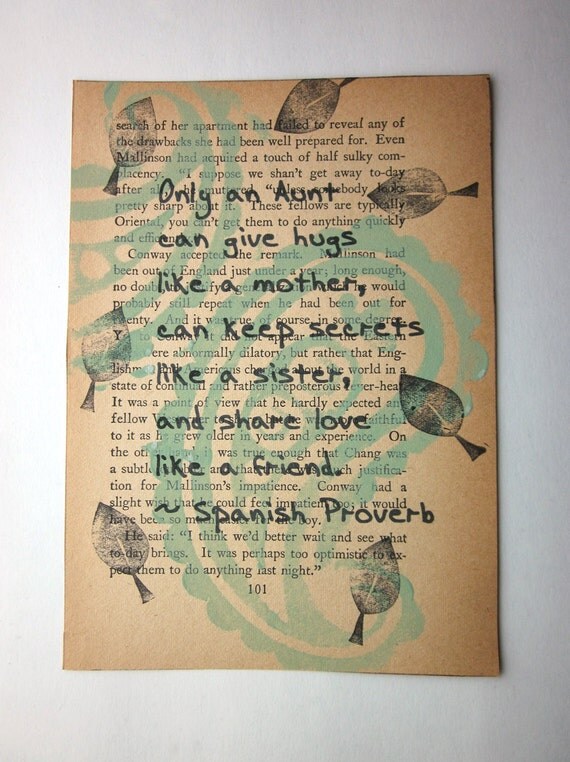 search of her apartment had failed to reveal any of
the drawbacks she had been well prepared for. Even
Mallinson had acquired a touch of half sulky com-
placency. "I suppose we shan't get away to-day
after muttered "unless somebody looks
pretty sharp about it. These fellows are typically
Oriental, you can't get them to do anything quickly
and efficient
Conway accepted the remark. Mallinson had
been out of England just under a year; long enough,
no doubt would
probably still repeat when he had been out for
twenty. And it was true, of course, in some degree.
Y to Conway it did not appear that the Eastern
ere abnormally dilatory, but rather that Eng-
lishm and Americans charged about the world in a
state of continual and rather preposterous fever-heat
It was a point of view that he hardly expected an
fellow faithful
to it as he grew older in years and experience. On
the other hand, it was true enough that Chang was
a subtle and that such justifica-
tion for Mallinson's impatience. Conway had a
slight wish that he could feel impatient too; it would
have been so much easier for the boy.
He said: "I think we'd better wait and see what
to-day brings. It was perhaps too optimistic to ex-
pect them to do anything last night."
101
Only an Aunt
can give hugs
like a mother,
can keep secrets
like a sister,
and share love
like a friend.
~ Spanish Proverb